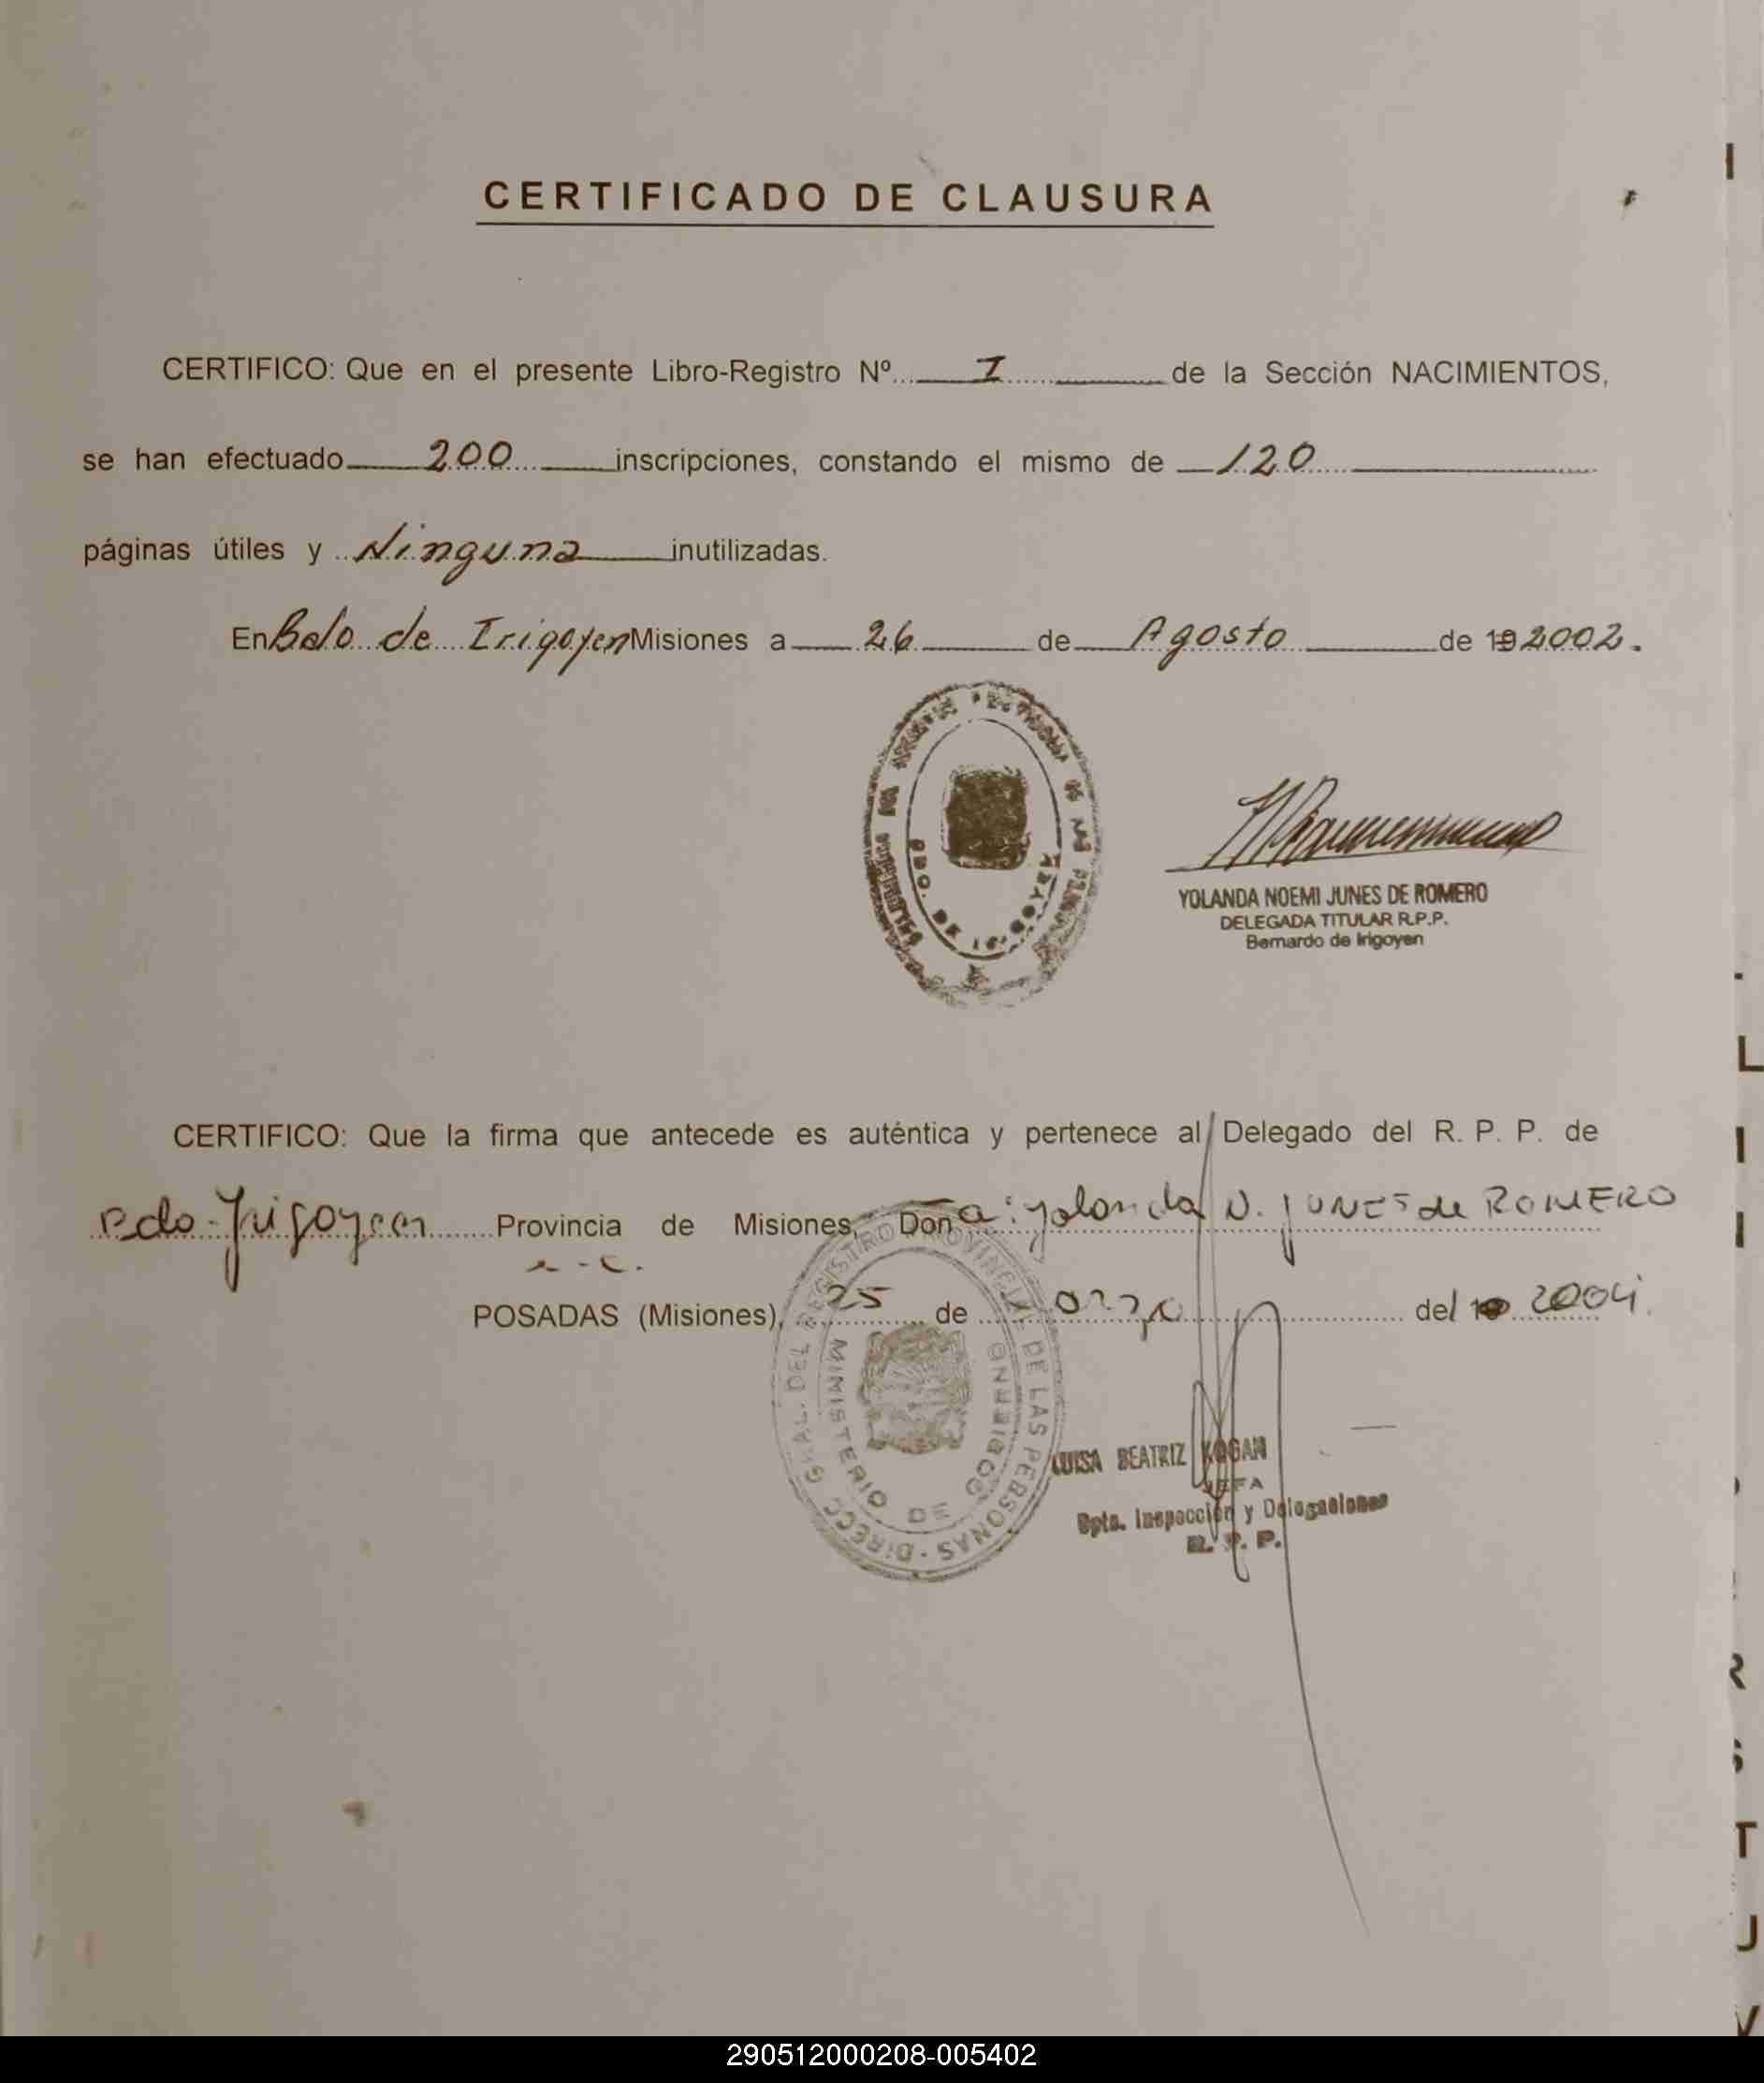 CERTIFICADO DE CLAUSURA
CERTIFICO: Que en el presente Libro-Registro Nº I de la Sección NACIMIENTOS,
se han efectuado 200 inscripciones, constando el mismo de 120
páginas útiles y Ninguna inutilizadas.
En Bdo de Irigoyen Misiones a 26 de Agosto de 19 2002.
BDO. DE
YOLANDA NOEMI JUNES DE ROMERO
DELEGADA TITULAR R.P.P.
Bernardo de Irigoyen
CERTIFICO: Que la firma que antecede es auténtica y pertenece al Delegado del R. P. P. de
Bdo. Irigoyen Provincia de Misiones, Don a: Yolanda N. JUNES de ROMERO
POSADAS (Misiones), 25 de del 2004.
DIRECC. GRAL. DEL REGISTRO PROVINCIAL DE LAS PERSONAS
MINISTERIO DE GOBIERNO
LUISA BEATRIZ KOGAN
JEFA
Dpto. Inspección y Delegaciones
R. P. P.
I
L
I
I
R
S
T
U
V
290512000208-005402